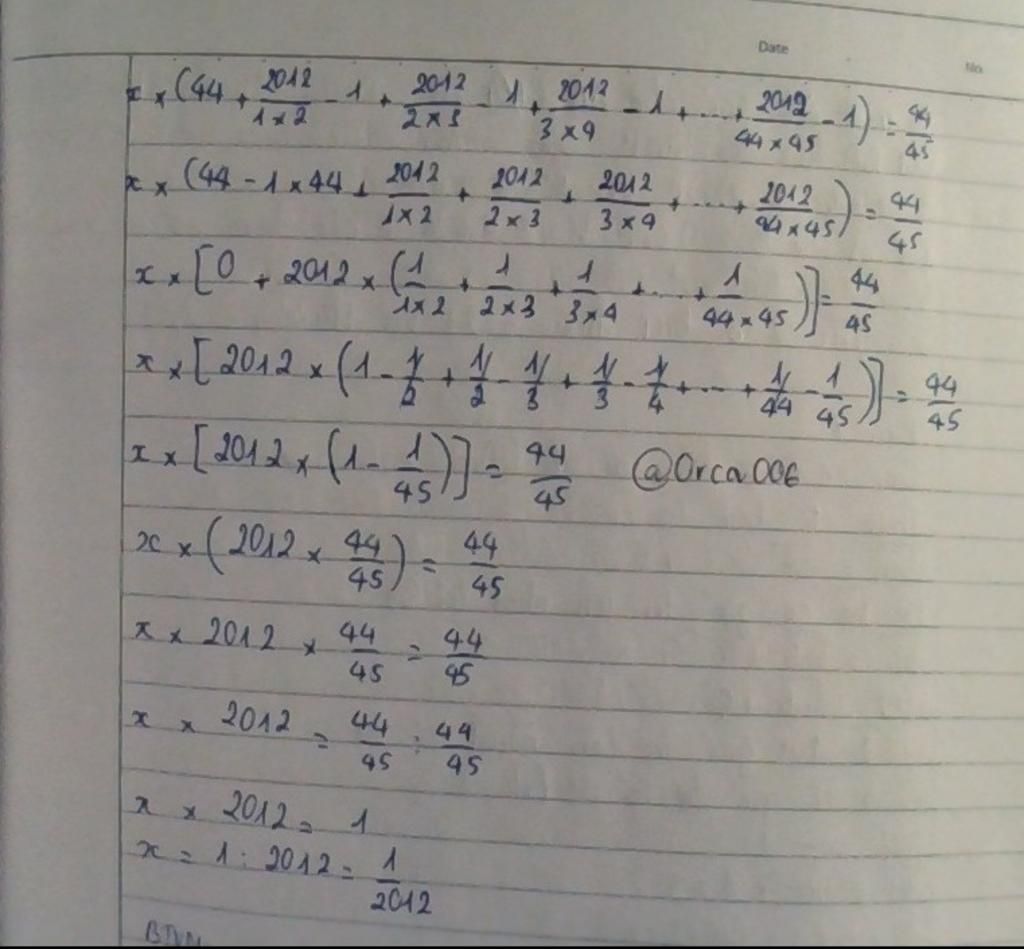 Date
No
x × (44 + 2012/1×2 - 1 + 2012/2×3 - 1 + 2012/3×4 - 1 + ... + 2012/44×45 - 1) = 44/45
x × (44 - 1 × 44 + 2012/1×2 + 2012/2×3 + 2012/3×4 + ... + 2012/44×45) = 44/45
x × [0 + 2012 × (1/1×2 + 1/2×3 + 1/3×4 + ... + 1/44×45)] = 44/45
x × [2012 × (1 - 1/2 + 1/2 - 1/3 + 1/3 - 1/4 + ... + 1/44 - 1/45)] = 44/45
x × [2012 × (1 - 1/45)] = 44/45 @Orca006
x × (2012 × 44/45) = 44/45
x × 2012 × 44/45 = 44/45
x × 2012 = 44/45 : 44/45
x × 2012 = 1
x = 1 : 2012 = 1/2012